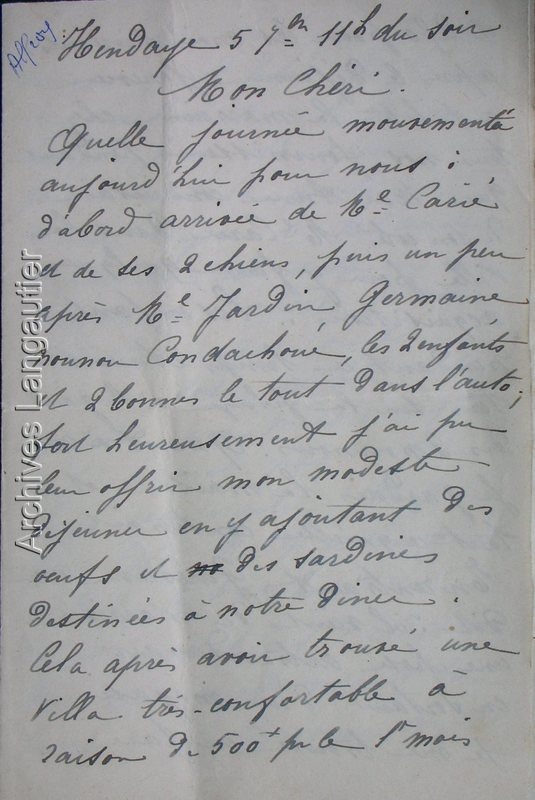 Hendaye 5 7bre 11h du soir
Mon Chéri.
Quelle journée mouvementé
aujourd'hui pour nous :
d'abord arrivée de Me Carié
et de ses 2 chiens, puis un peu
après Me Jardin Germaine
nounou Condachoué, les 2 enfants
et 2 bonnes le tout dans l'auto ;
fort heureusement j'ai pu
leur offrir mon modeste
déjeuner en y ajoutant des
oeufs et des sardines
destinées à notre diner.
Cela après avoir trouvé une
villa très-confortable à
raison de 500f pr le 1r mois
Archives Langautier